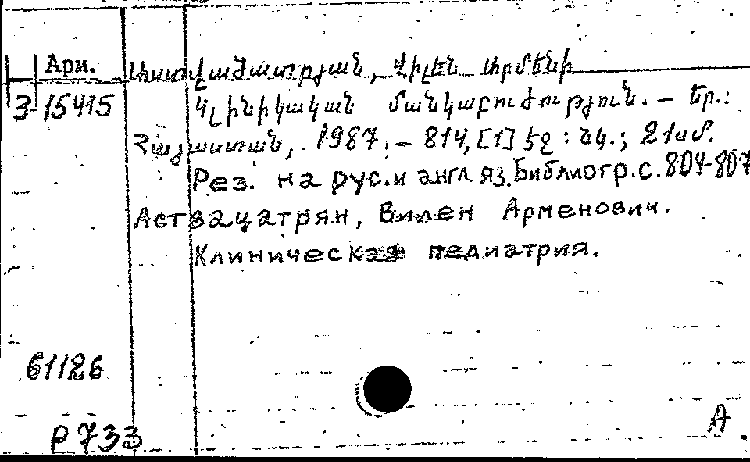 Арм. Աստվածատրյան, Վիլեն Արմենի
3-15415 Կլինիկական մանկաբուժություն. – Եր.:
Հայաստան, 1987. – 814, [1] էջ : նկ.; 21սմ.
Рез. на рус. и англ. яз. Библиогр. с. 804-807
Аствацатрян, Вилен Арменович.
Клиническая педиатрия.
61126
Р733
А